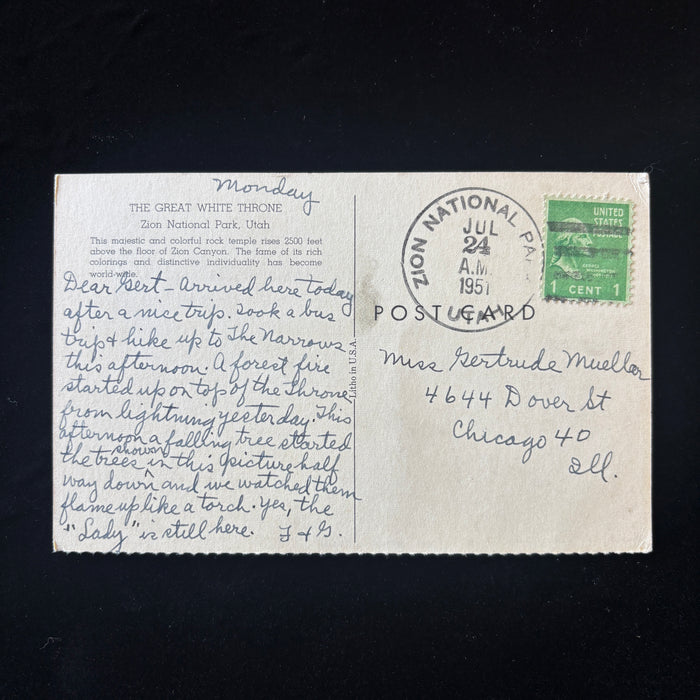 Monday
THE GREAT WHITE THRONE
Zion National Park, Utah
This majestic and colorful rock temple rises 2500 feet
above the floor of Zion Canyon. The fame of its rich
colorings and distinctive individuality has become
world-wide.
Dear Gert - Arrived here today
after a nice trip. Took a bus
trip + hike up to The Narrows
this afternoon. A forest fire
started up on top of the Throne
from lightning yesterday. This
afternoon a falling tree started
the trees shown in this picture half
way down and we watched them
flame up like a torch. Yes, the
"Lady" is still here.
Litho in U.S.A.
ZION NATIONAL
JUL
24
A.M.
1951
UTAH
UNITED
STATES
POSTAGE
GEORGE
WASHINGTON
1 CENT 1
POST CARD
Miss Gertrude Mueller
4644 Dover St
Chicago 40
Ill.